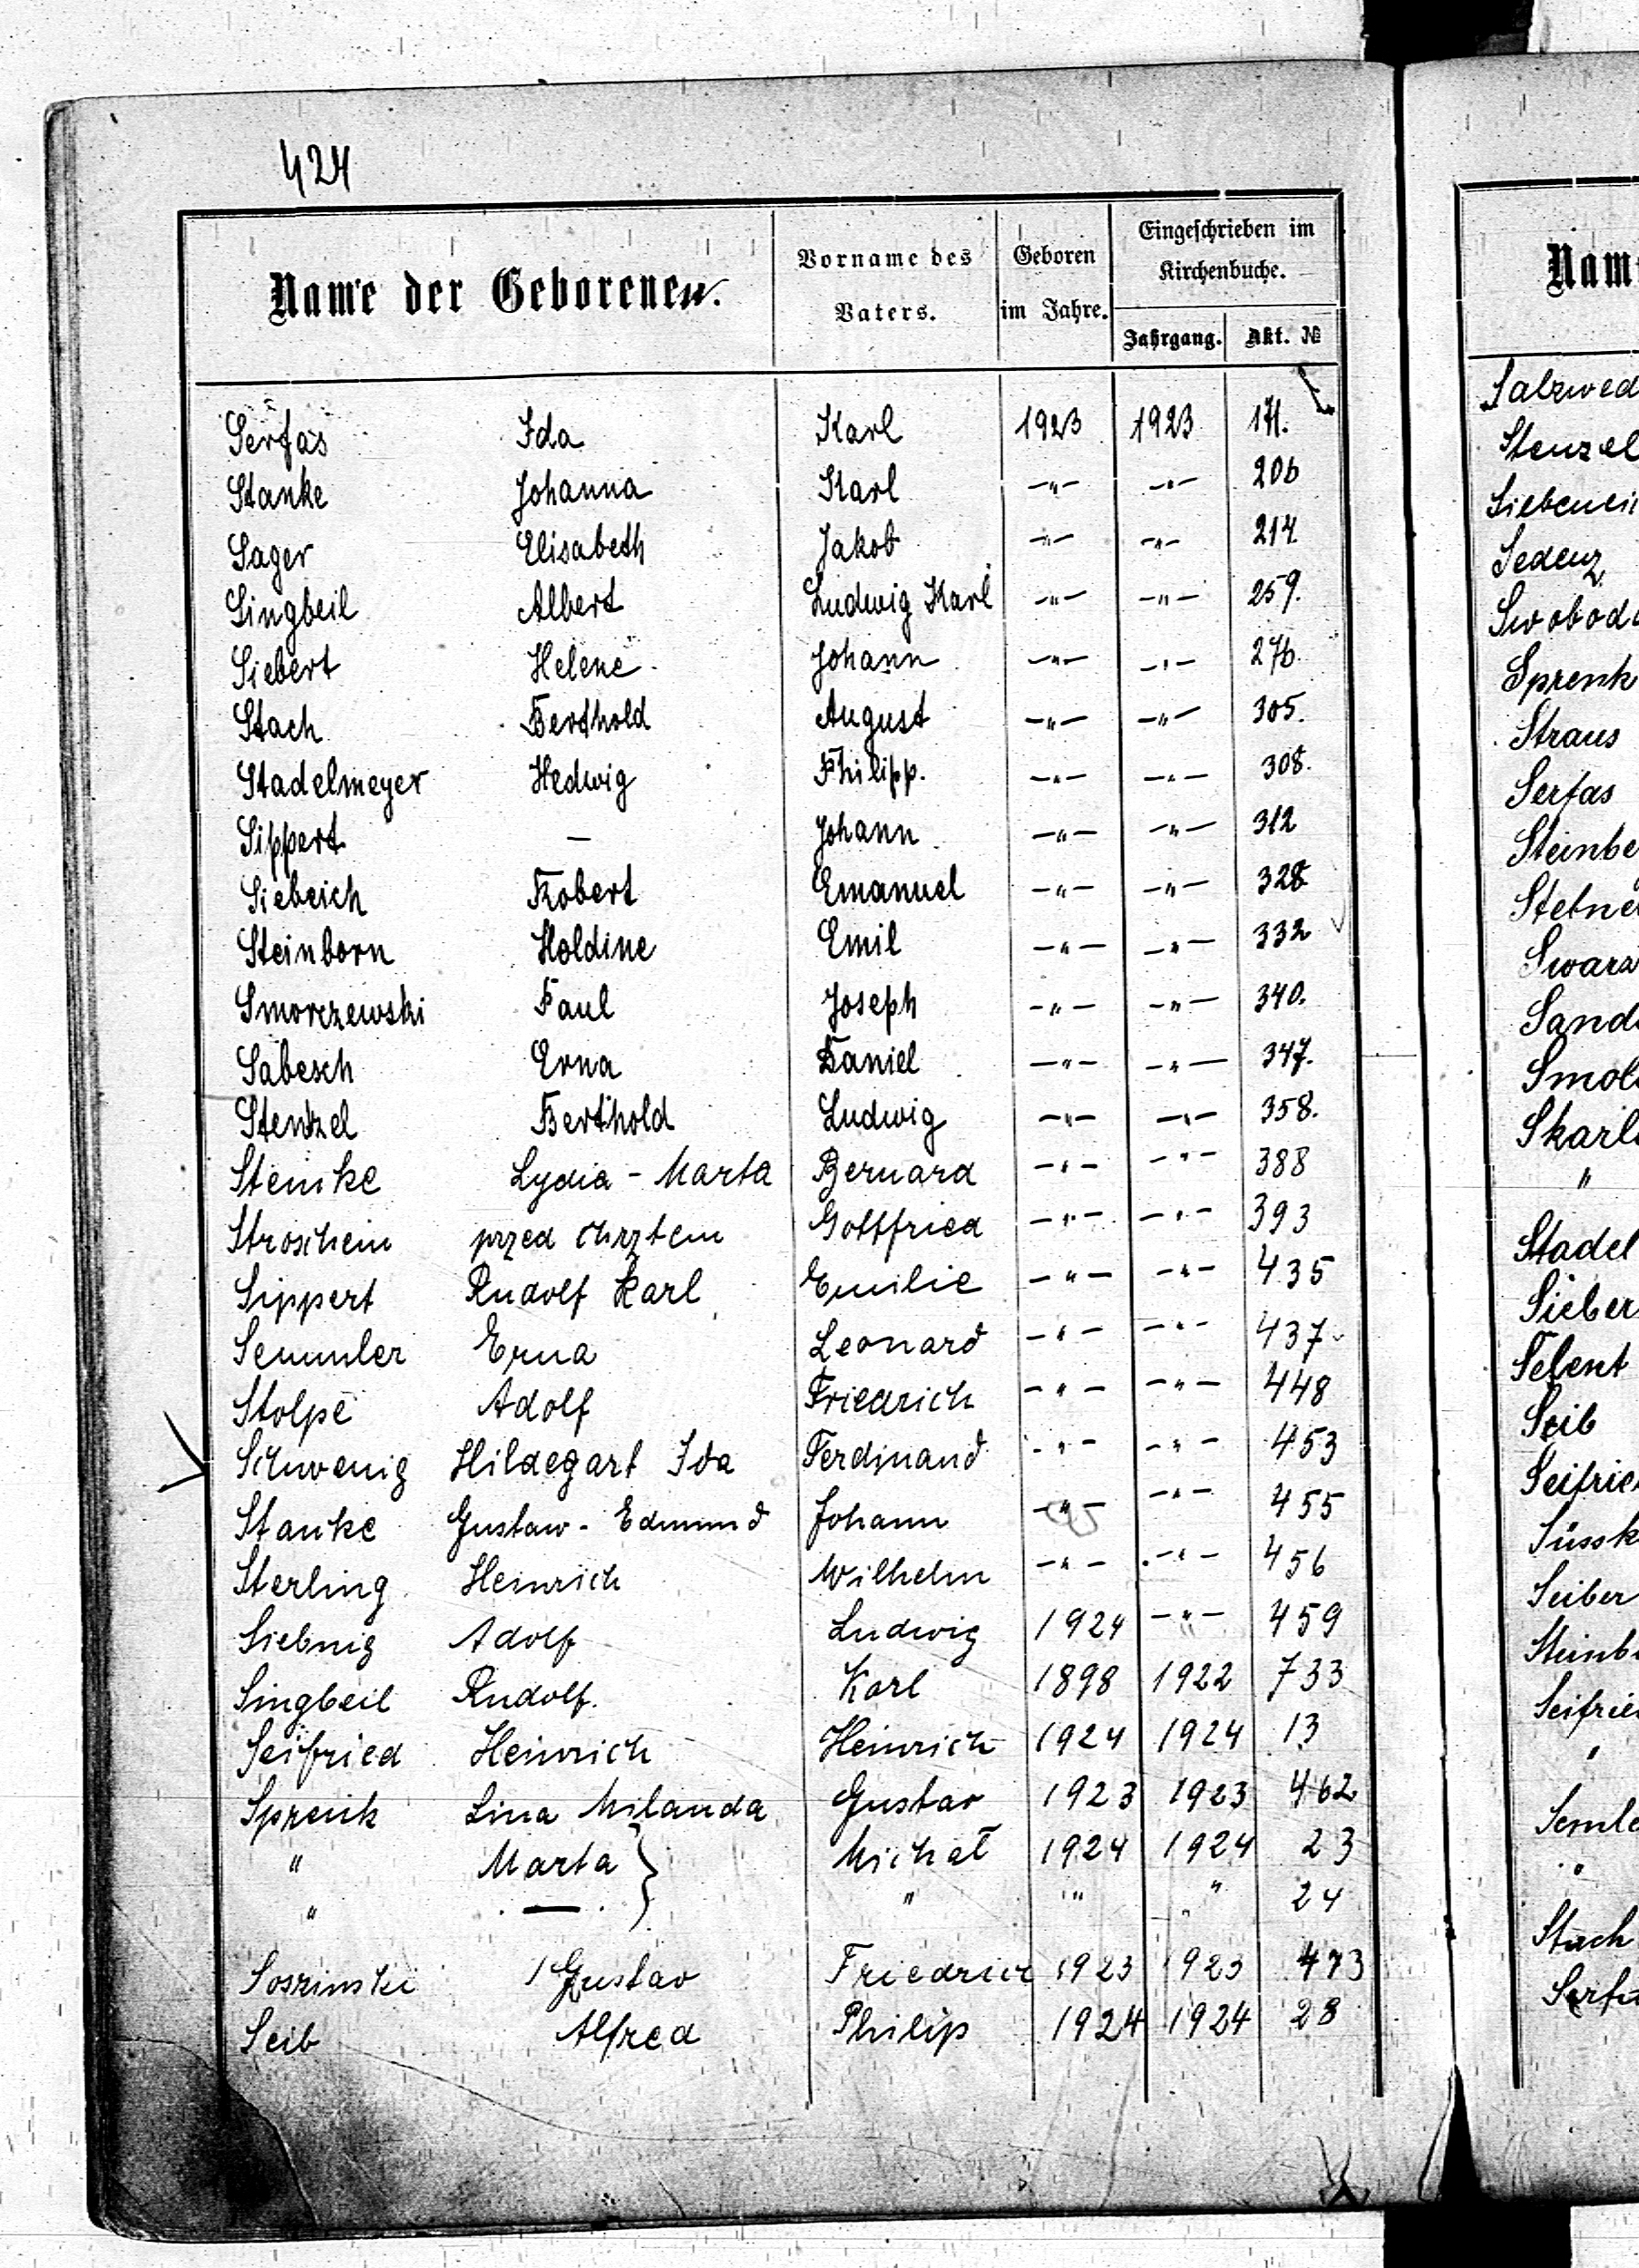 424
Name der Geborenen.
Vorname des Vaters.
Geboren im Jahre.
Eingeschrieben im Kirchenbuche.
Jahrgang. Akt. №
Serfas Ida Karl 1923 1923 171.
Stanke Johanna Karl -〃- -〃- 206
Sager Elisabeth Jakob -〃- -〃- 214
Singbeil Albert Ludwig Karl -〃- -〃- 259.
Siebert Helene Johann -〃- -〃- 276.
Stach Berthold August -〃- -〃- 305.
Stadelmeyer Hedwig Philipp. -〃- -〃- 308.
Sippert — Johann -〃- -〃- 312
Siebeich Robert Emanuel -〃- -〃- 328
Steinborn Holdine Emil -〃- -〃- 332
Smorczewski Paul Joseph -〃- -〃- 340.
Sabesch Erna Daniel -〃- -〃- 347.
Stenzel Berthold Ludwig -〃- -〃- 358.
Steinke Lydia - Marta Bernard -〃- -〃- 388
Stroschein przed chrztem Gottfried -〃- -〃- 393
Sippert Rudolf Karl Emilie -〃- -〃- 435
Semmler Erna Leonard -〃- -〃- 437
Stolpe Adolf Friedrich -〃- -〃- 448
Schwenig Hildegart Ida Ferdinand -〃- -〃- 453
Stanke Gustaw - Edmund Johann -〃- -〃- 455
Sterling Heinrich Wilhelm -〃- -〃- 456
Siebnig Adolf Ludwig 1924 -〃- 459
Singbeil Rudolf. Karl 1898 1922 733
Seifried Heinrich Heinrich 1924 1924 13
Sprenk Lina Milanda Gustav 1923 1923 462
〃 Marta } Michał 1924 1924 23
〃 — 〃 〃 〃 24
Soszinski Gustav Friedrich 1923 1923 473
Seib Alfred Philip 1924 1924 28
Nam
Stenzel
Sedenz
Sprenk
Straus
Serfas
〃
Stadel
Sieber
Seib
Seiber
〃
〃
Stach